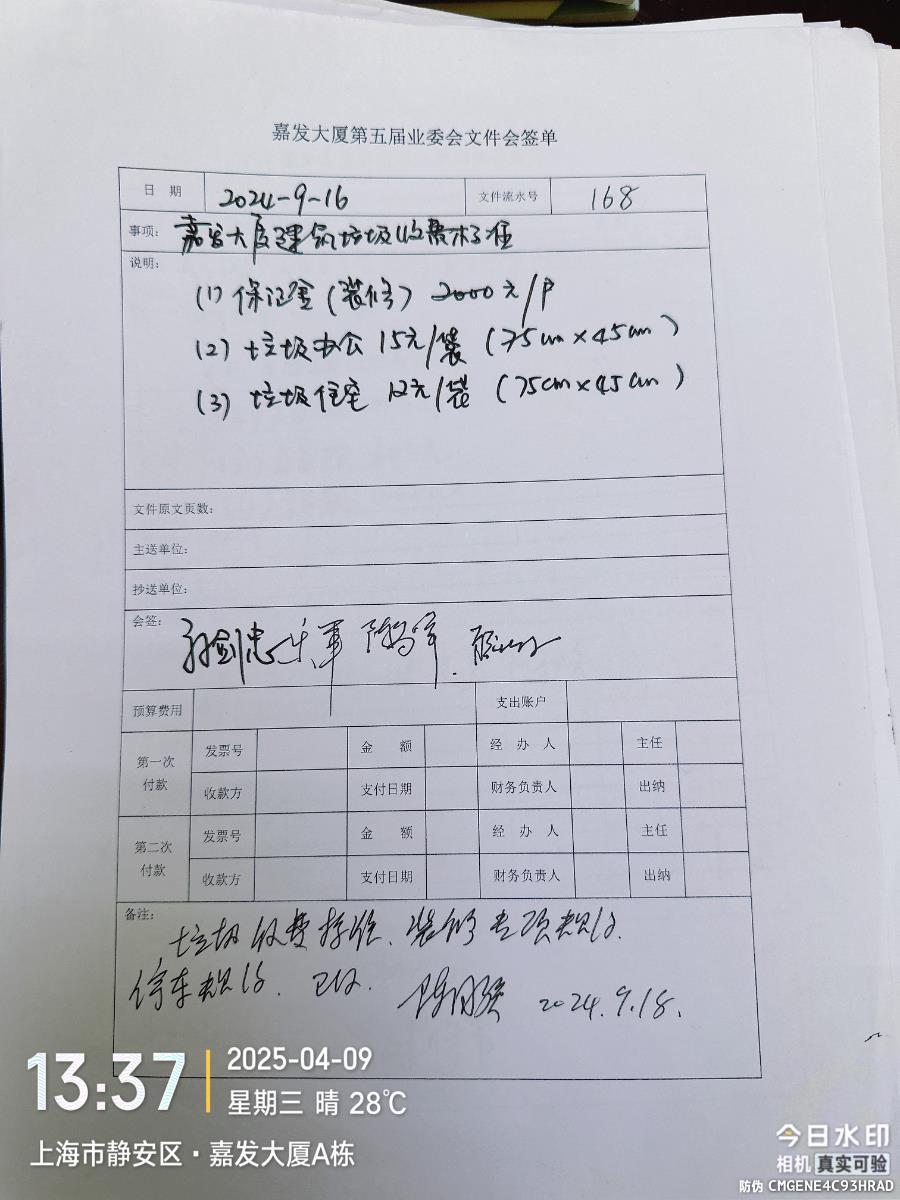 嘉发大厦第五届业委会文件会签单
日 期 2024-9-16 文件流水号 168
事项: 嘉发大厦建筑垃圾收费标准
说明:
(1) 保证金(装修) 2000元/户
(2) 垃圾办公 15元/袋 (75cm×45cm)
(3) 垃圾住宅 12元/袋 (75cm×45cm)
文件原文页数:
主送单位:
抄送单位:
会签:
预算费用 支出账户
第一次付款 发票号 金 额 经 办 人 主任
收款方 支付日期 财务负责人 出纳
第二次付款 发票号 金 额 经 办 人 主任
收款方 支付日期 财务负责人 出纳
备注:
垃圾收费标准、装修专项
停车 2024.9.18.
13:37
2025-04-09
星期三 晴 28℃
上海市静安区·嘉发大厦A栋
今日水印
相机 真实可验
防伪 CMGENE4C93HRAD